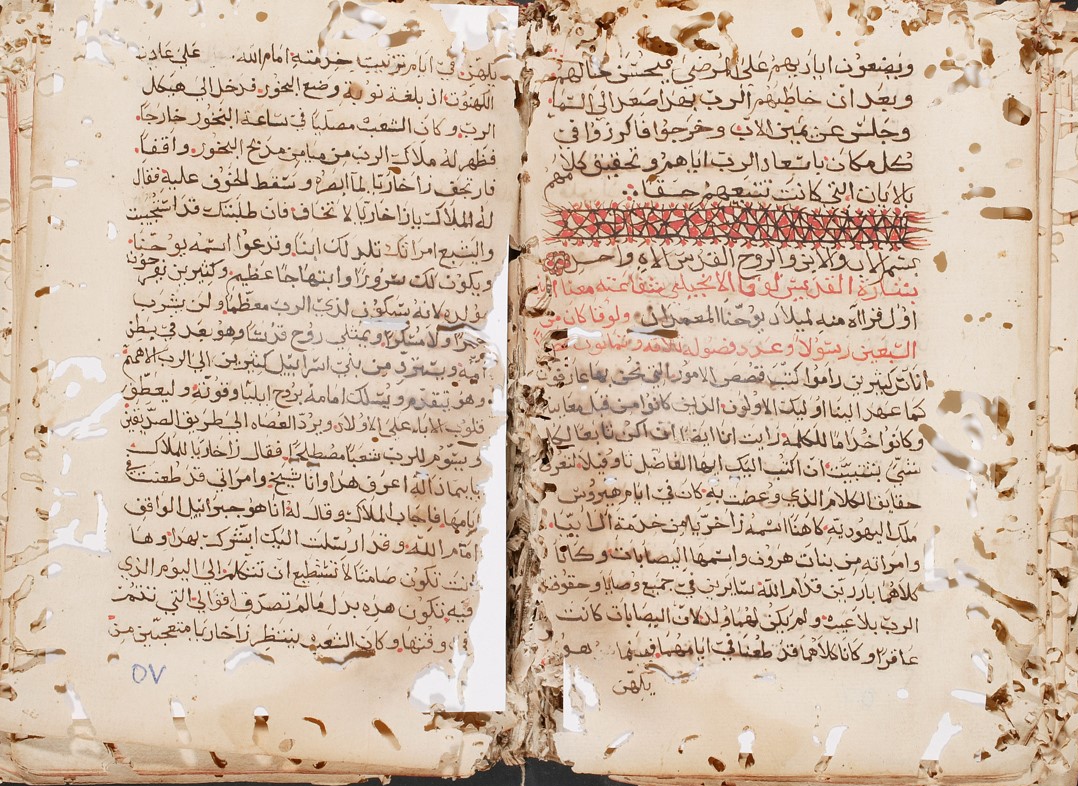 ويضعون اياديهم على المرضى فيحسن حالهم
وبعد ان خاطبهم الرب بهذا صعد الى السما
وجلس عن يمين الاب وخرجوا فاكرزوا في
كل مكان باسعاد الرب اياهم وتحقيق كلامهم
بالايات التي كانت تتبعهم حقا
بسم الاب والابن والروح القدس الاه واحد
بشارة القديس لوقا الانجيلي
اول قراة منه لميلاد يوحنا المعمدان ولوقا كان من
السبعين رسولا وعدد فصوله
اناس كثيرين راموا كتب قصص الامور التي نحن بها عارفون
كما عهد الينا اوليك الاولون الذين كانوا من قبل معاينين
وكانوا خداما للكلمة رايت انا ايضا اذ كنت تابعا لكل
شي بتثبيت ان اكتب اليك ايها الفاضل تاوفيلا لتعرف
حقايق الكلام الذي وعظت به كان في ايام هيرودس
ملك اليهوديه كاهنا اسمه زاخريا من خدمة ال ابيا
وامراته من بنات هرون واسمها اليصابات وكانا
كلاهما بارين قدام الله سايرين في جميع وصايا وحقوق
الرب بلا عيب ولم يكن لهما ولد لان اليصابات كانت
عاقرا وكانا كلاهما قد طعنا في ايامهما فبينما هو
يلهن
يلهن في ايام ترتيب خدمته امام الله على عادة
الكهنوت اذ بلغته نوبة وضع البخور فدخل الى هيكل
الرب وكان الشعب مصليا في ساعة البخور خارجا
فظهر له ملاك الرب من ميامن مذبح البخور واقفا
فارتجف زاخاريا لما ابصر وسقط الخوف عليه فقال
له الملاك يا زاخاريا لا تخاف فان طلبتك قد استجيبت
واليشبع امراتك تلد لك ابنا وتدعوا اسمه يوحنا
ويكون لك سرورا وابتهاجا عظيم وكثيرين يفرحون
بمولده لانه سيكون لدى الرب معظما ولن يشرب
خمرا ولا مسكرا ويمتلي روح قدسا وهو بعد في بطن
امه ويسترد من بني اسراييل كثيرين الى الرب الاههم
وهو يتقدم ويسلك امامه بروح ايليا وقوته وليعطف
قلوب الاباء على الاولاد ويرد العصاه الى طريق الصديقين
ويسوم للرب شعبا مصطلحا فقال زاخاريا للملاك
بماذا اعرف هذا وانا شيخ وامراتي قد طعنت في
ايامها فاجاب الملاك وقال له انا هو جبراييل الواقف
امام الله وقد ارسلت اليك ابشرك بهذا وها
انت تكون صامتا لا تستطيع ان تتكلم الى اليوم الذي
فيه تكون هذه بدل ما لم تصدق اقوالي التي تتم
في وقتها وكان الشعب ينتظر زاخاريا متعجبين من
٥٧